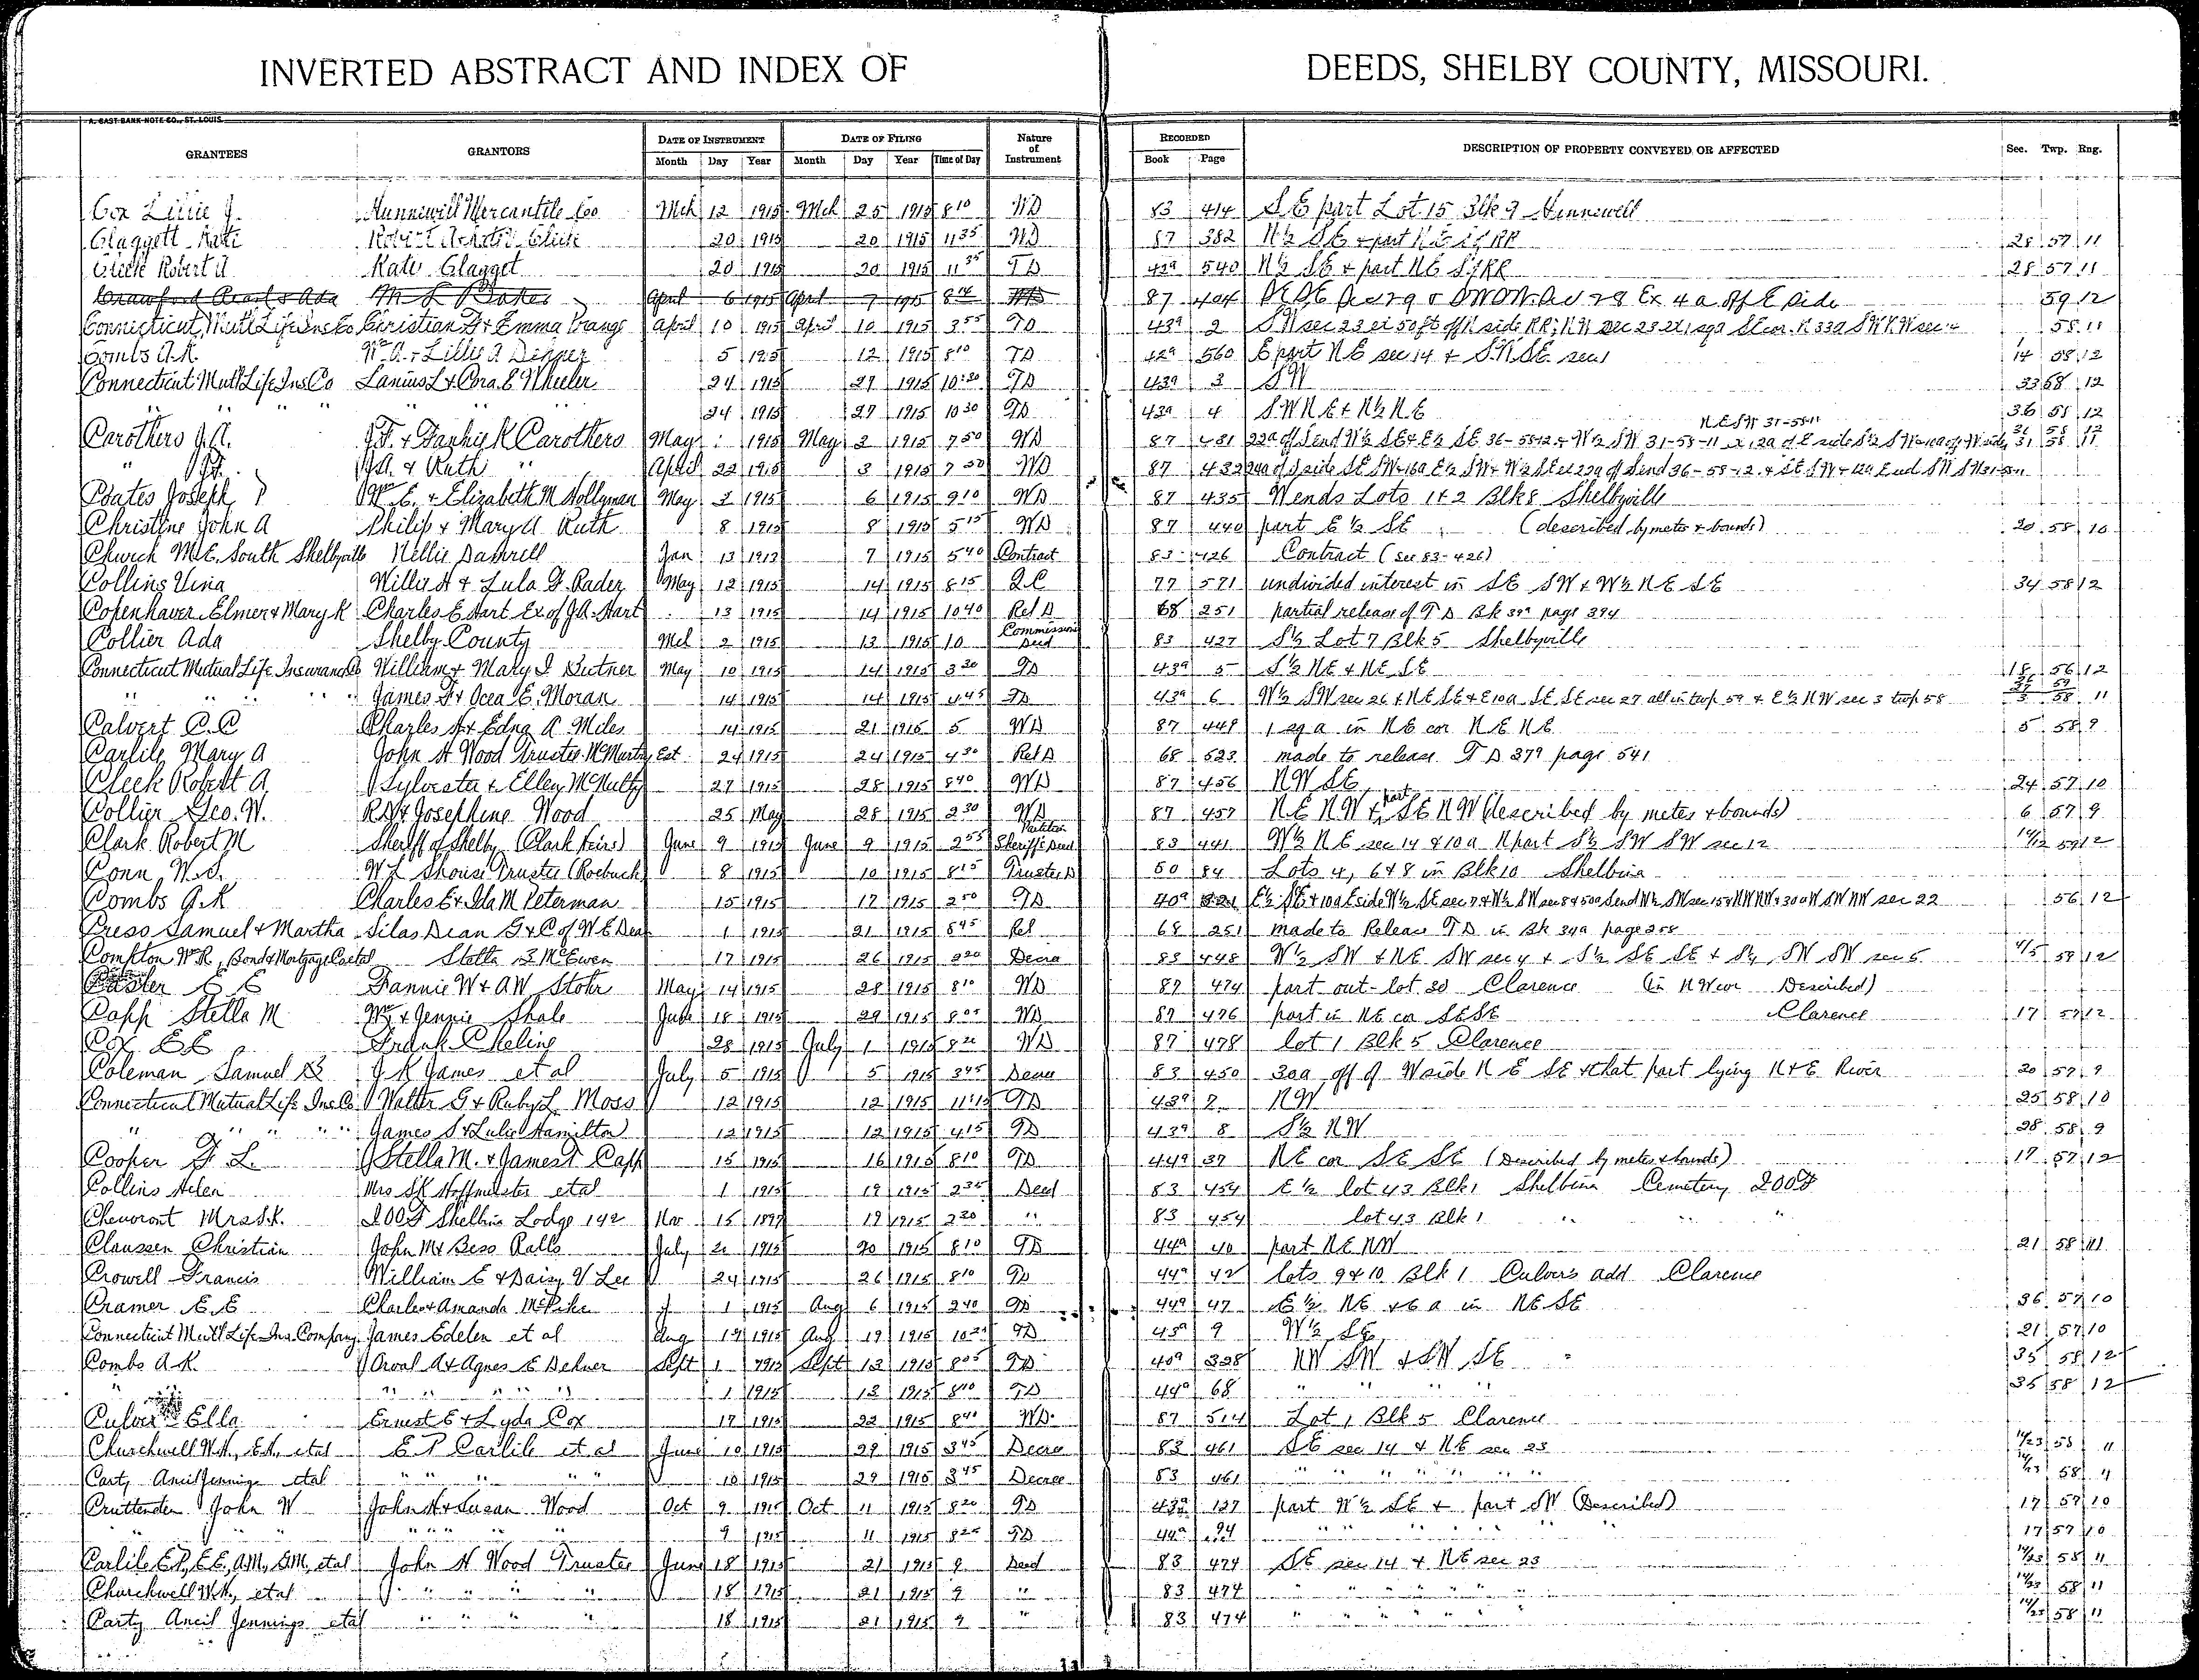 INVERTED ABSTRACT AND INDEX OF DEEDS, SHELBY COUNTY, MISSOURI.
A. GAST BANK NOTE CO., ST. LOUIS
GRANTEES GRANTORS DATE OF INSTRUMENT DATE OF FILING Nature of Instrument RECORDED DESCRIPTION OF PROPERTY CONVEYED OR AFFECTED Sec. Twp. Rng.
Month Day Year Month Day Year Time of Day Book Page
Cox Lillie J. Hunnewell Mercantile Co Mch 12 1915 Mch 25 1915 8 10 WD 83 414 S E part Lot 15 Blk 9 Hunnewell
Glaggett Kate Robert 20 1915 20 1915 11 35 WD 87 382 N½ SE + part NE RR 28 57 11
Robert A Kate Glagget 20 1915 20 1915 11 35 TD 42a 540 N½ SE + part NE S of RR 28 57 11
Crawford Ada April 6 1915 April 7 1915 WD 87 404 Ex 4 a off E side 59 12
Connecticut Mutl Life Ins Co Christian F + Emma Prange April 10 1915 April 10 1915 3 55 TD 43a 2 SW sec 23 ex 50 ft off N side RR; NW sec 23 58 11
Combs A.K. Wm A. + Lillie A Dehner 5 1915 12 1915 8 10 TD 42a 560 E part NE sec 14 + SW SE sec 1 1 14 58 12
Connecticut Mutl Life Ins Co Lanius L + Cora E Wheeler 24 1915 27 1915 10:30 TD 43a 3 SW 33 58 12
" " " " " 24 1915 27 1915 10 30 TD 43a 4 SW NE + N½ NE 36 58 12
Carothers J.A. J.F. + Fannie K Carothers May 1 1915 May 3 1915 7 50 WD 87 431 22a off S end W½ SE + E½ SE 36-58-12 + W½ SW 31-58-11 NE SW 31-58-11 31 58 11
" J.F. J.A. + Ruth " April 22 1915 3 1915 7 50 WD 87 432
Coates Joseph Wm E. + Elizabeth M Hollyman May 3 1915 6 1915 9 10 WD 87 435 W ends Lots 1 + 2 Blk 8 Shelbyville
Christine John A Philip + Mary A Ruth 8 1915 8 1915 5 15 WD 87 440 part E ½ SE (described by mets + bounds) 20 58 10
Church M.E. South Shelbyville Nellie Damrell Jan 13 1913 7 1915 5 40 Contract 83 426 Contract (see 83-426)
Collins Vina Willis H + Lula F. Rader May 12 1915 14 1915 8 15 Q.C 77 571 undivided interest in SE SW + W½ NE SE 34 58 12
Copenhaver Elmer + Mary K Charles E Hart Ex of J.A. Hart 13 1915 14 1915 10 40 Rel D 68 251 partial release of TD Bk 39a page 394
Collier Ada Shelby County Mch 2 1915 13 1915 10 Commissioners Deed 83 427 S½ Lot 7 Blk 5 Shelbyville
Connecticut Mutual Life Insurance Co William + Mary I Butner May 10 1915 14 1915 3 30 TD 43a 5 S½ NE + NE SE 18 56 12
" " " " James F + Ocea E. Moran 14 1915 14 1915 4 45 TD 43a 6 W½ SW sec 26 + NE SE + E 10a SE SE sec 27 all in twp 59 + E½ NW sec 3 twp 58 3 58 11
Calvert C.C Charles A + Edna A. Miles 14 1915 21 1915 5 WD 87 449 1 sq a in NE cor NE NE 5 58 9
Carlile Mary A John H Wood Trustee McMurtry Est 24 1915 24 1915 4 30 Rel D 68 523 made to release TD 37a page 541
Cleek Robert A. Sylvester + Ellen McNulty 27 1915 28 1915 8 40 WD 87 456 NW SE 24 57 10
Collier Geo. W. R.D + Josephine Wood 25 May 28 1915 2 30 WD 87 457 NE NW + part SE NW (described by metes + bounds) 6 57 9
Clark Robert M Sheriff of Shelby (Clark heirs) June 9 1915 June 9 1915 2 55 Partition Sheriff's Deed 83 441 W½ NE sec 14 + 10a N part S½ SW SW sec 12 14/12 57 12
Conn W.S. W L Shouse Trustee (Roebuck) 8 1915 10 1915 8 15 Trustee D 50 84 Lots 4, 6 + 8 in Blk 10 Shelbina
Combs A.K Charles E + Ida M Peterman 15 1915 17 1915 2 50 TD 40a 321 56 12
Cress Samuel + Martha Silas Dean G + C of W E Dean 1 1915 21 1915 8 45 Rel 68 251 made to Release TD in Bk 34a page 258
Compton Wm R, Bond + Mortgage Co etal Stotts B McEwen 17 1915 26 1915 2 20 Decree 83 448 W½ SW + NE SW sec 4 + S½ SE SE + S½ SW SW sec 5 4/5 59 12
Caster E E Fannie W + A W Stohr May 14 1915 28 1915 8 10 WD 87 474 part out-lot 30 Clarence (in NW cor Described)
Capp Stella M Wm + Jennie Shale June 18 1915 29 1915 8 05 WD 87 476 part in NE cor SE SE Clarence 17 57 12
Cox E E Frank Cheline 28 1915 July 1 1915 8 20 WD 87 478 lot 1 Blk 5 Clarence
Coleman Samuel B J K James et al July 5 1915 5 1915 3 45 Decree 83 450 30a off of W side NE SE + that part lying N + E River 20 57 9
Connecticut Mutual Life Ins Co Walter G + Ruby L Moss 12 1915 12 1915 11 15 TD 43a 7 NW 25 58 10
" " " " " James S + Lulie Hamilton 12 1915 12 1915 4 15 TD 43a 8 S½ NW 28 58 9
Cooper F L. Stella M. + James T Capp 15 1915 16 1915 8 10 TD 44a 37 NE cor SE SE (Described by metes + bounds) 17 57 12
Collins Helen Mrs S K Hoffmeister etal 1 1915 19 1915 2 30 Deed 83 454 E ½ lot 43 Blk 1 Shelbina Cemetery IOOF
Chevront Mrs S.K. IOOF Shelbina Lodge 142 Mar 15 1897 19 1915 2 30 " 83 454 lot 43 Blk 1 " " "
Claussen Christian John M + Bess Ralls July 2 1915 20 1915 8 10 TD 44a 40 part NE NW 21 58 11
Crowell Francis William E + Daisy V Lee 24 1915 26 1915 8 10 TD 44a 42 lots 9 + 10 Blk 1 Culvers add Clarence
Cramer E.E Charles + Amanda McPike 1 1915 Aug 6 1915 2 40 TD 44a 47 E½ NE + 6 a in NE SE 36 57 10
Connecticut Mutl Life Ins Company James Edelen et al Aug 19 1915 Aug 19 1915 TD 43a 9 W½ SE 21 57 10
Combs A.K. Orval A + Agnes E Dehner Sept 1 1915 Sept 13 1915 8 05 TD 40a 328 NW SW + SW SE 35 58 12
" " " " " " 1 1915 13 1915 8 10 TD 44a 68 " " " " 35 58 12
Culver Ella Ernest E + Lyda Cox 17 1915 22 1915 8 40 WD. 87 514 Lot 1 Blk 5 Clarence
Churchwell W.H., E.H., etal E P Carlile et al June 10 1915 29 1915 3 45 Decree 83 461 SE sec 14 + NE sec 23 14/23 58 11
Carty Ancil Jennings etal " " " " 10 1915 29 1915 3 45 Decree 83 461 " " " " " " 14/23 58 11
Cruttenden John W John H + Susan Wood Oct 9 1915 Oct 11 1915 8 20 TD 43a 127 part W½ SE + part SW (Described) 17 57 10
" " " " " " 9 1915 11 1915 8 25 TD 44a 94 " " " " " 17 57 10
Carlile E.P., E.E., A.M., G.M., etal John H Wood Trustee June 18 1915 21 1915 9 Deed 83 474 SE sec 14 + NE sec 23 14/23 58 11
Churchwell W.H., etal " " " " 18 1915 21 1915 9 " 83 474 " " " " " " 14/23 58 11
Carty Ancil Jennings etal " " " " 18 1915 21 1915 9 " 83 474 " " " " " " 14/23 58 11